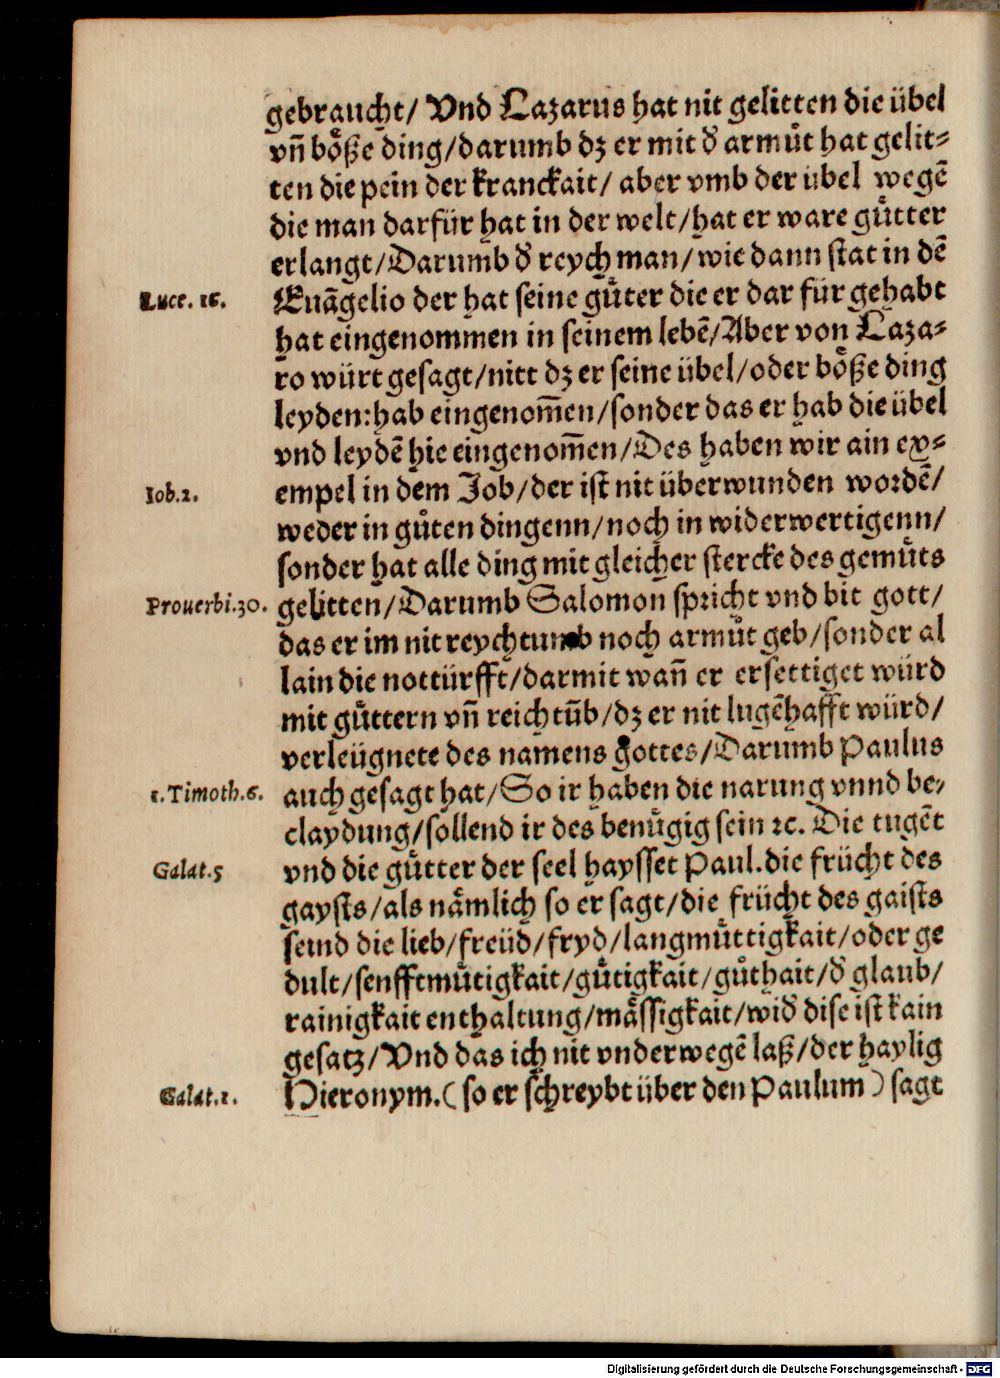 gebraucht/ Vnd Lazarus hat nit gelitten die übel
vñ boͤße ding/darumb dz er mit d̕ armuͦt hat gelit⸗
ten die pein der kranckait/ aber vmb der übel wegẽ
die man darfür hat in der welt/hat er ware guͤtter
erlangt/Darumb d̕ reych man/wie dann stat in dẽ
Luce. 16. Euãgelio der hat seine guͤter die er dar für gehabt
hat eingenommen in seinem lebẽ/Aber von Laza⸗
ro würt gesagt/nitt dz er seine übel/oder boͤße ding
leyden:hab eingenom̃en/sonder das er hab die übel
vnd leydẽ hie eingenom̃en/Des haben wir ain ex⸗
Iob.2. empel in dem Job/der ist nit überwunden wordẽ/
weder in guͦten dingenn/noch in widerwertigenn/
sonder hat alle ding mit gleicher stercke des gemuͤts
Prouerbi.30. gelitten/Darumb Salomon spricht vnd bit gott/
das er im nit reychtumb noch armuͦt geb/sonder al
lain die nottürfft/darmit wañ er ersettiget würd
mit guͤttern vñ reichtũb/dz er nit lugẽhafft würd/
verleügnete des namens Gottes/Darumb Paulus
1.Timoth.6. auch gesagt hat/So ir haben die narung vnnd be⸗
claydung/sollend ir des benuͤgig sein ꝛc. Die tugẽt
Galat.5 vnd die guͤtter der seel haysset Paul.die frücht des
gaysts/als naͤmlich so er sagt/die frücht des gaists
seind die lieb/freüd/fryd/langmuͤttigkait/oder ge
dult/senfftmuͤtigkait/guͤtigkait/guͦthait/d̕ glaub/
rainigkait enthaltung/maͤssigkait/wid̕ dise ist kain
gesatz/Vnd das ich nit vnderwegẽ laß/der haylig
Galat.1. Hieronym.(so er schreybt über den Paulum) sagt
Digitalisierung gefördert durch die Deutsche Forschungsgemeinschaft - DFG